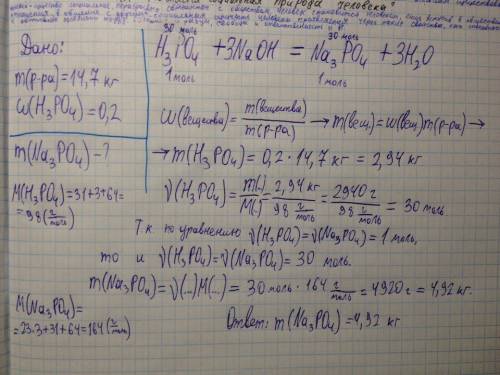 природа человека"
Дано:
m(р-ра)=14,7 кг
ω(H₃PO₄)=0,2
m(Na₃PO₄)-?
M(H₃PO₄)=31+3+64=
=98(г/моль)
M(Na₃PO₄)=
=23·3+31+64=164(г/моль)
30 моль 30 моль
H₃PO₄ + 3NaOH = Na₃PO₄ + 3H₂O
1 моль 1 моль
ω(вещества) = m(вещества)/m(р-ра) → m(вещ)=ω(вещ)m(р-ра) →
→ m(H₃PO₄) = 0,2 · 14,7 кг = 2,94 кг
ν(H₃PO₄) = m(..)/M(..) = 2,94 кг/98 г/моль = 2940 г/98 г/моль = 30 моль
Т.к. по уравнению ν(H₃PO₄)=ν(Na₃PO₄) = 1 моль,
то и ν(H₃PO₄)=ν(Na₃PO₄) = 30 моль.
m(Na₃PO₄)=ν(...)M(...) = 30 моль · 164 г/моль = 4920 г = 4,92 кг.
Ответ: m(Na₃PO₄)=4,92 кг